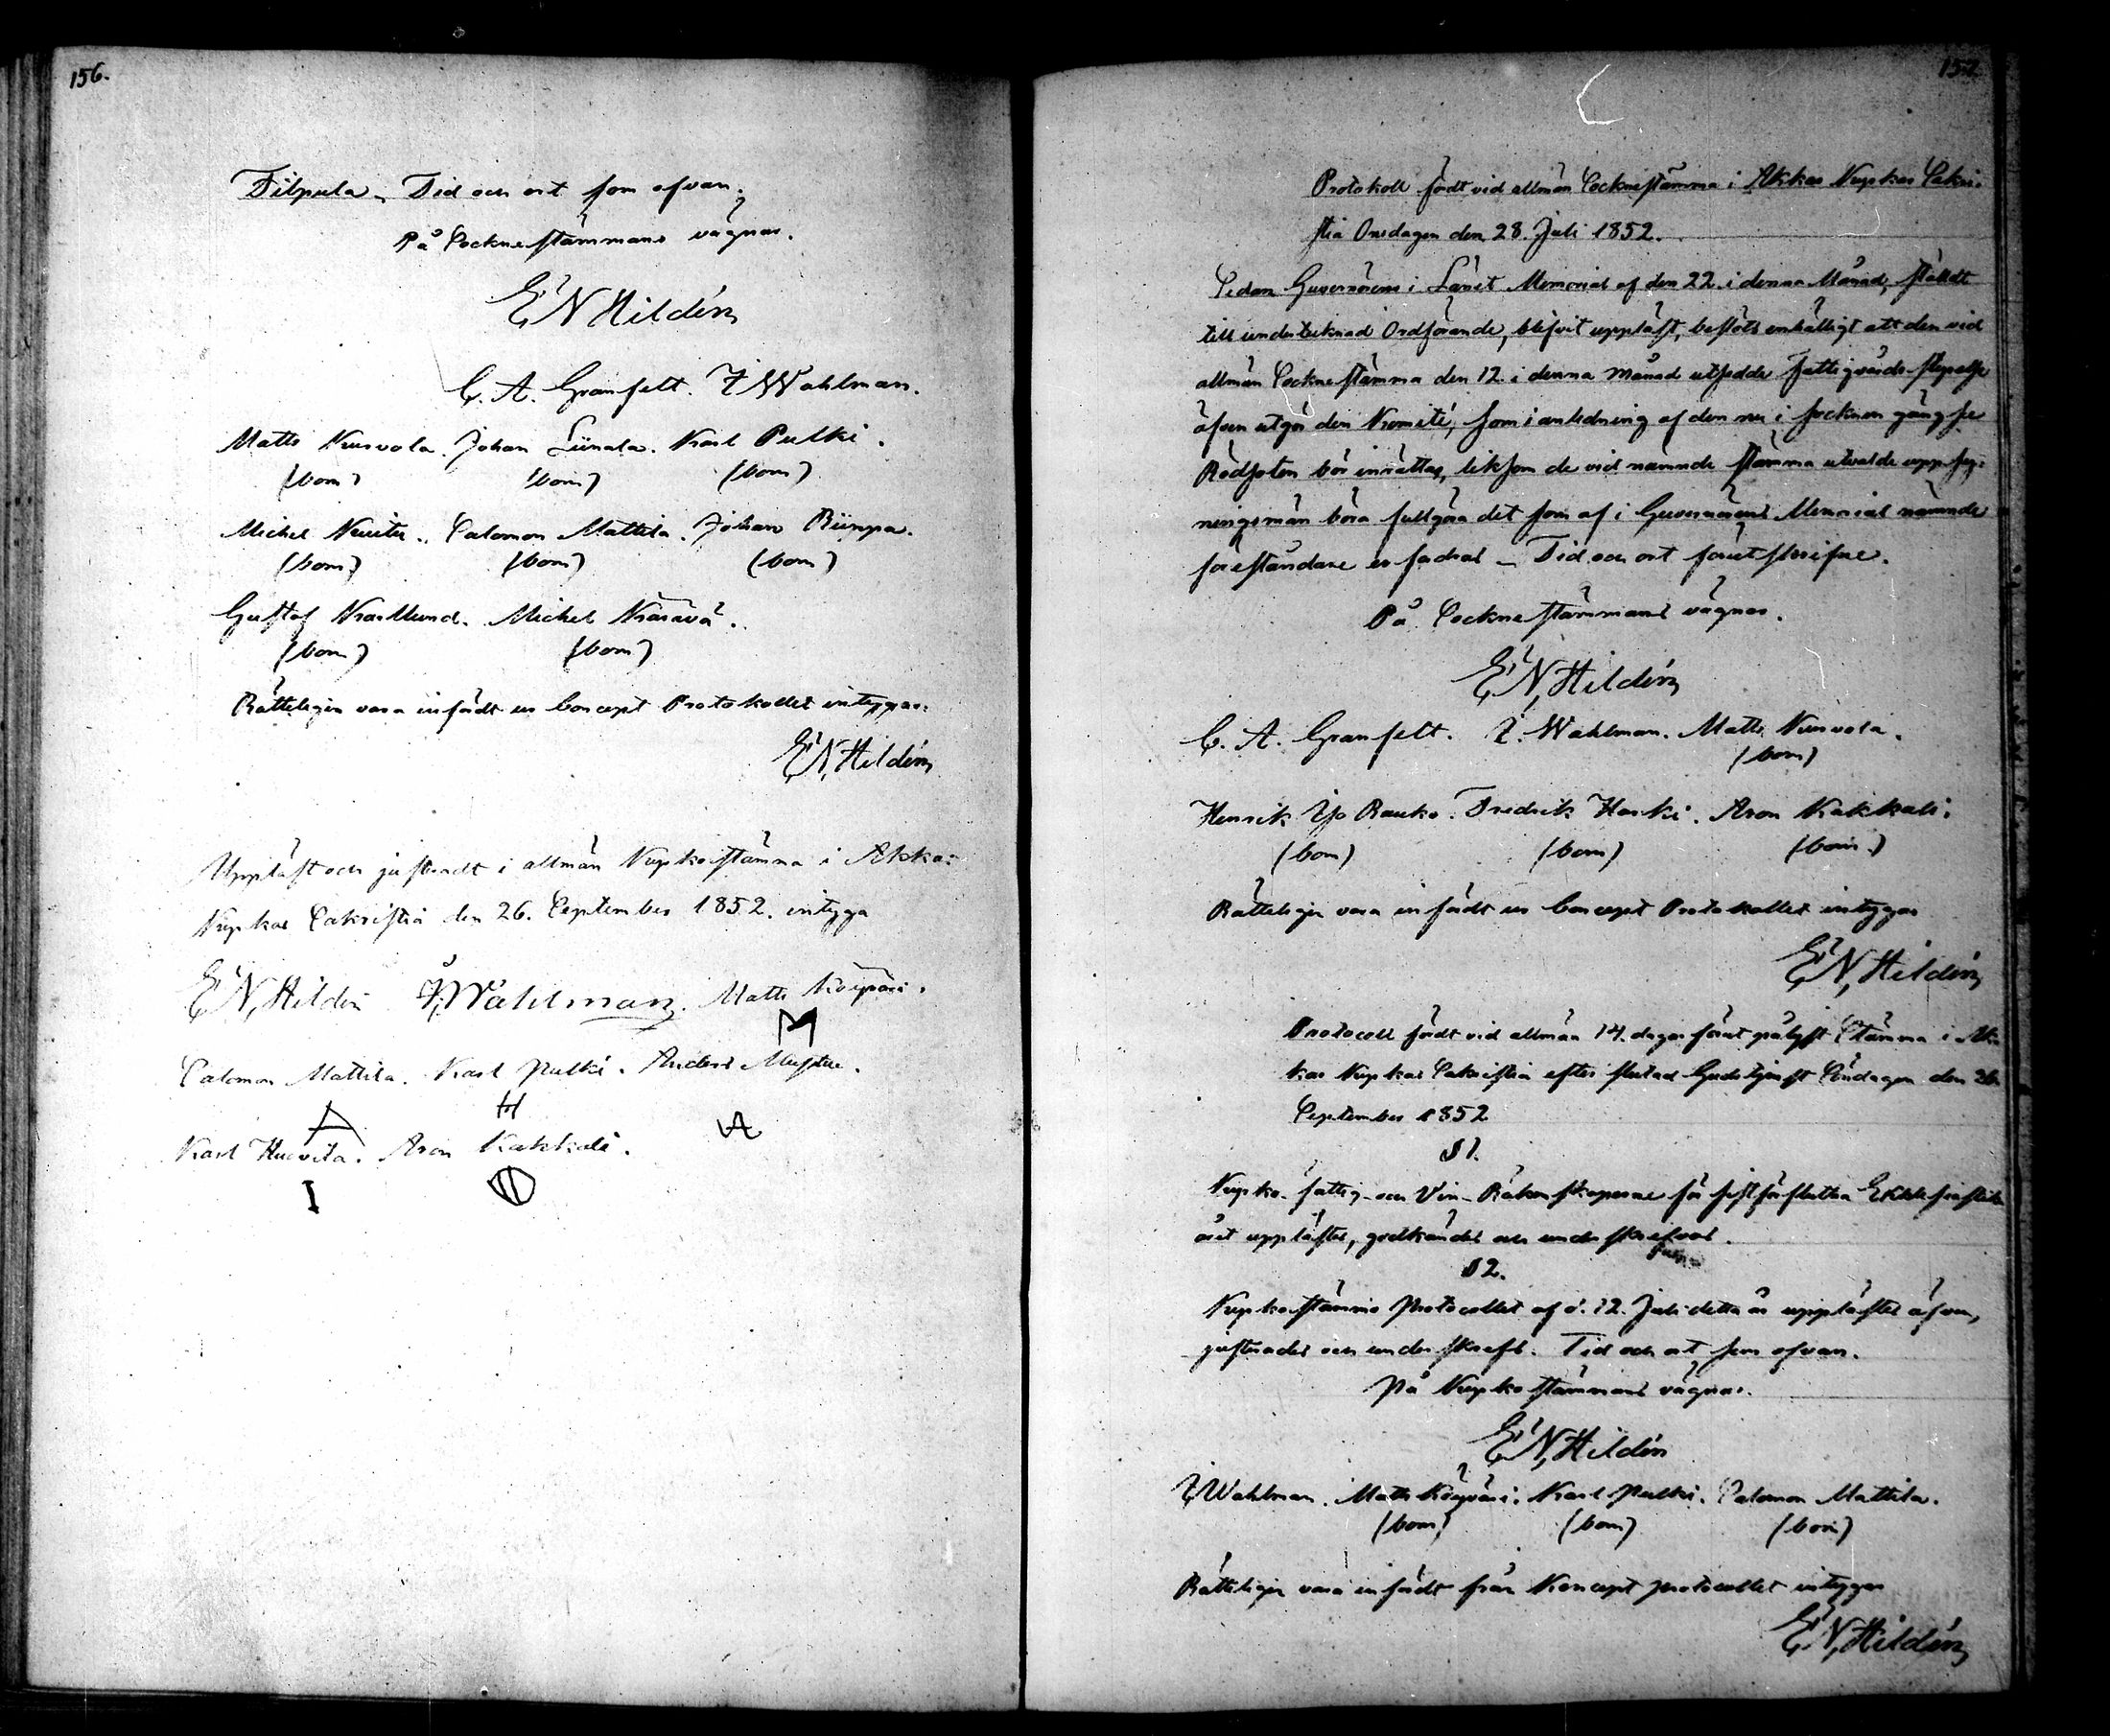 156.
Filpula. Tid och ort som ofvan.
På Socknestämmans vägnar.
E N Hildén
C. A. Granfelt. F Wahlman.
Matts Kurvola. Johan Liunala. Karl Pulki.
(bom) (bom) (bom)
Michel Salomon Mattila. Johan Riinpa.
(bom) (bom) (bom)
Gustaf Karllund. Michel Kärävä.
(bom) (bom)
Rätteligen vara infördt ur Concept Protokollet intygar:
E N Hildén
Uppläst och justeradt i allmän Kyrkostämma i Akkas
Kyrkas Sakristia den 26. September 1852. intyga
E N Hildén F Wahlman. Matts Köypäri.
M
Salomon Mattila. Karl Pulki. Anders
A H
Karl Huovila. Aron Kakkuli.
I
157
Protokoll fördt vid allmän Socknestämma i Akkas Kyrkas Sakri-
stia Onsdagen den 28. Juli 1852.
Sedan Guvernörens i Länet Memorial af den 22. i denna Månad, stäldt
till undertecknad Ordförande, blifvit uppläst, beslöts enhälligt att den vid
allmän Socknestämma den 12. i denna Månad utsedde Fattigvårds styrelse
äfven utgör den Komité, som i anledning af den nu i socknen gångse
Rödsoten bör inrättas, liksom de vid nämnde stämma utvalde uppsy-
ningsmän böra fullgöra det som af i Guvernörens Memorial nämnde
föreståndare er fodras. Tid och ort förutskrifne.
På Socknestämmans vägnar.
E N Hildén
C. A. Granfelt. F. Wahlman. Matts Kurvola.
(bom)
Henrik Yso Rauko. Fredrik Harki. Aron Kakkuli.
(bom) (bom) (bom)
Rätteligen vara infördt ur Concept Protokollet intygar
E N Hildén
Protocoll fördt vid allmän 14. dagar förut pålyst Stämma i Ak-
kas Kyrkas Sakristia efter slutad Gudstjenst Söndagen den 26
September 1852
§ 1.
Kyrko- fattig- och Vin- Räkenskaperne för sistförflutna Ekklesiastik
året upplästes, godkändes och underskrefvos.
§ 2.
Kyrkostämmo Protocollet af d. 12. Juli detta år upplästes äfven,
justerades och underskrefs. Tid och ort som ofvan.
På Kyrkostämmans vägnar.
E N Hildén
F Wahlman. Matts Köypäri. Karl Pulki. Salomon Mattila.
(bom) (bom) (bom)
Rätteligen vara infördt från Koncept protocollet intygar
E N Hildén